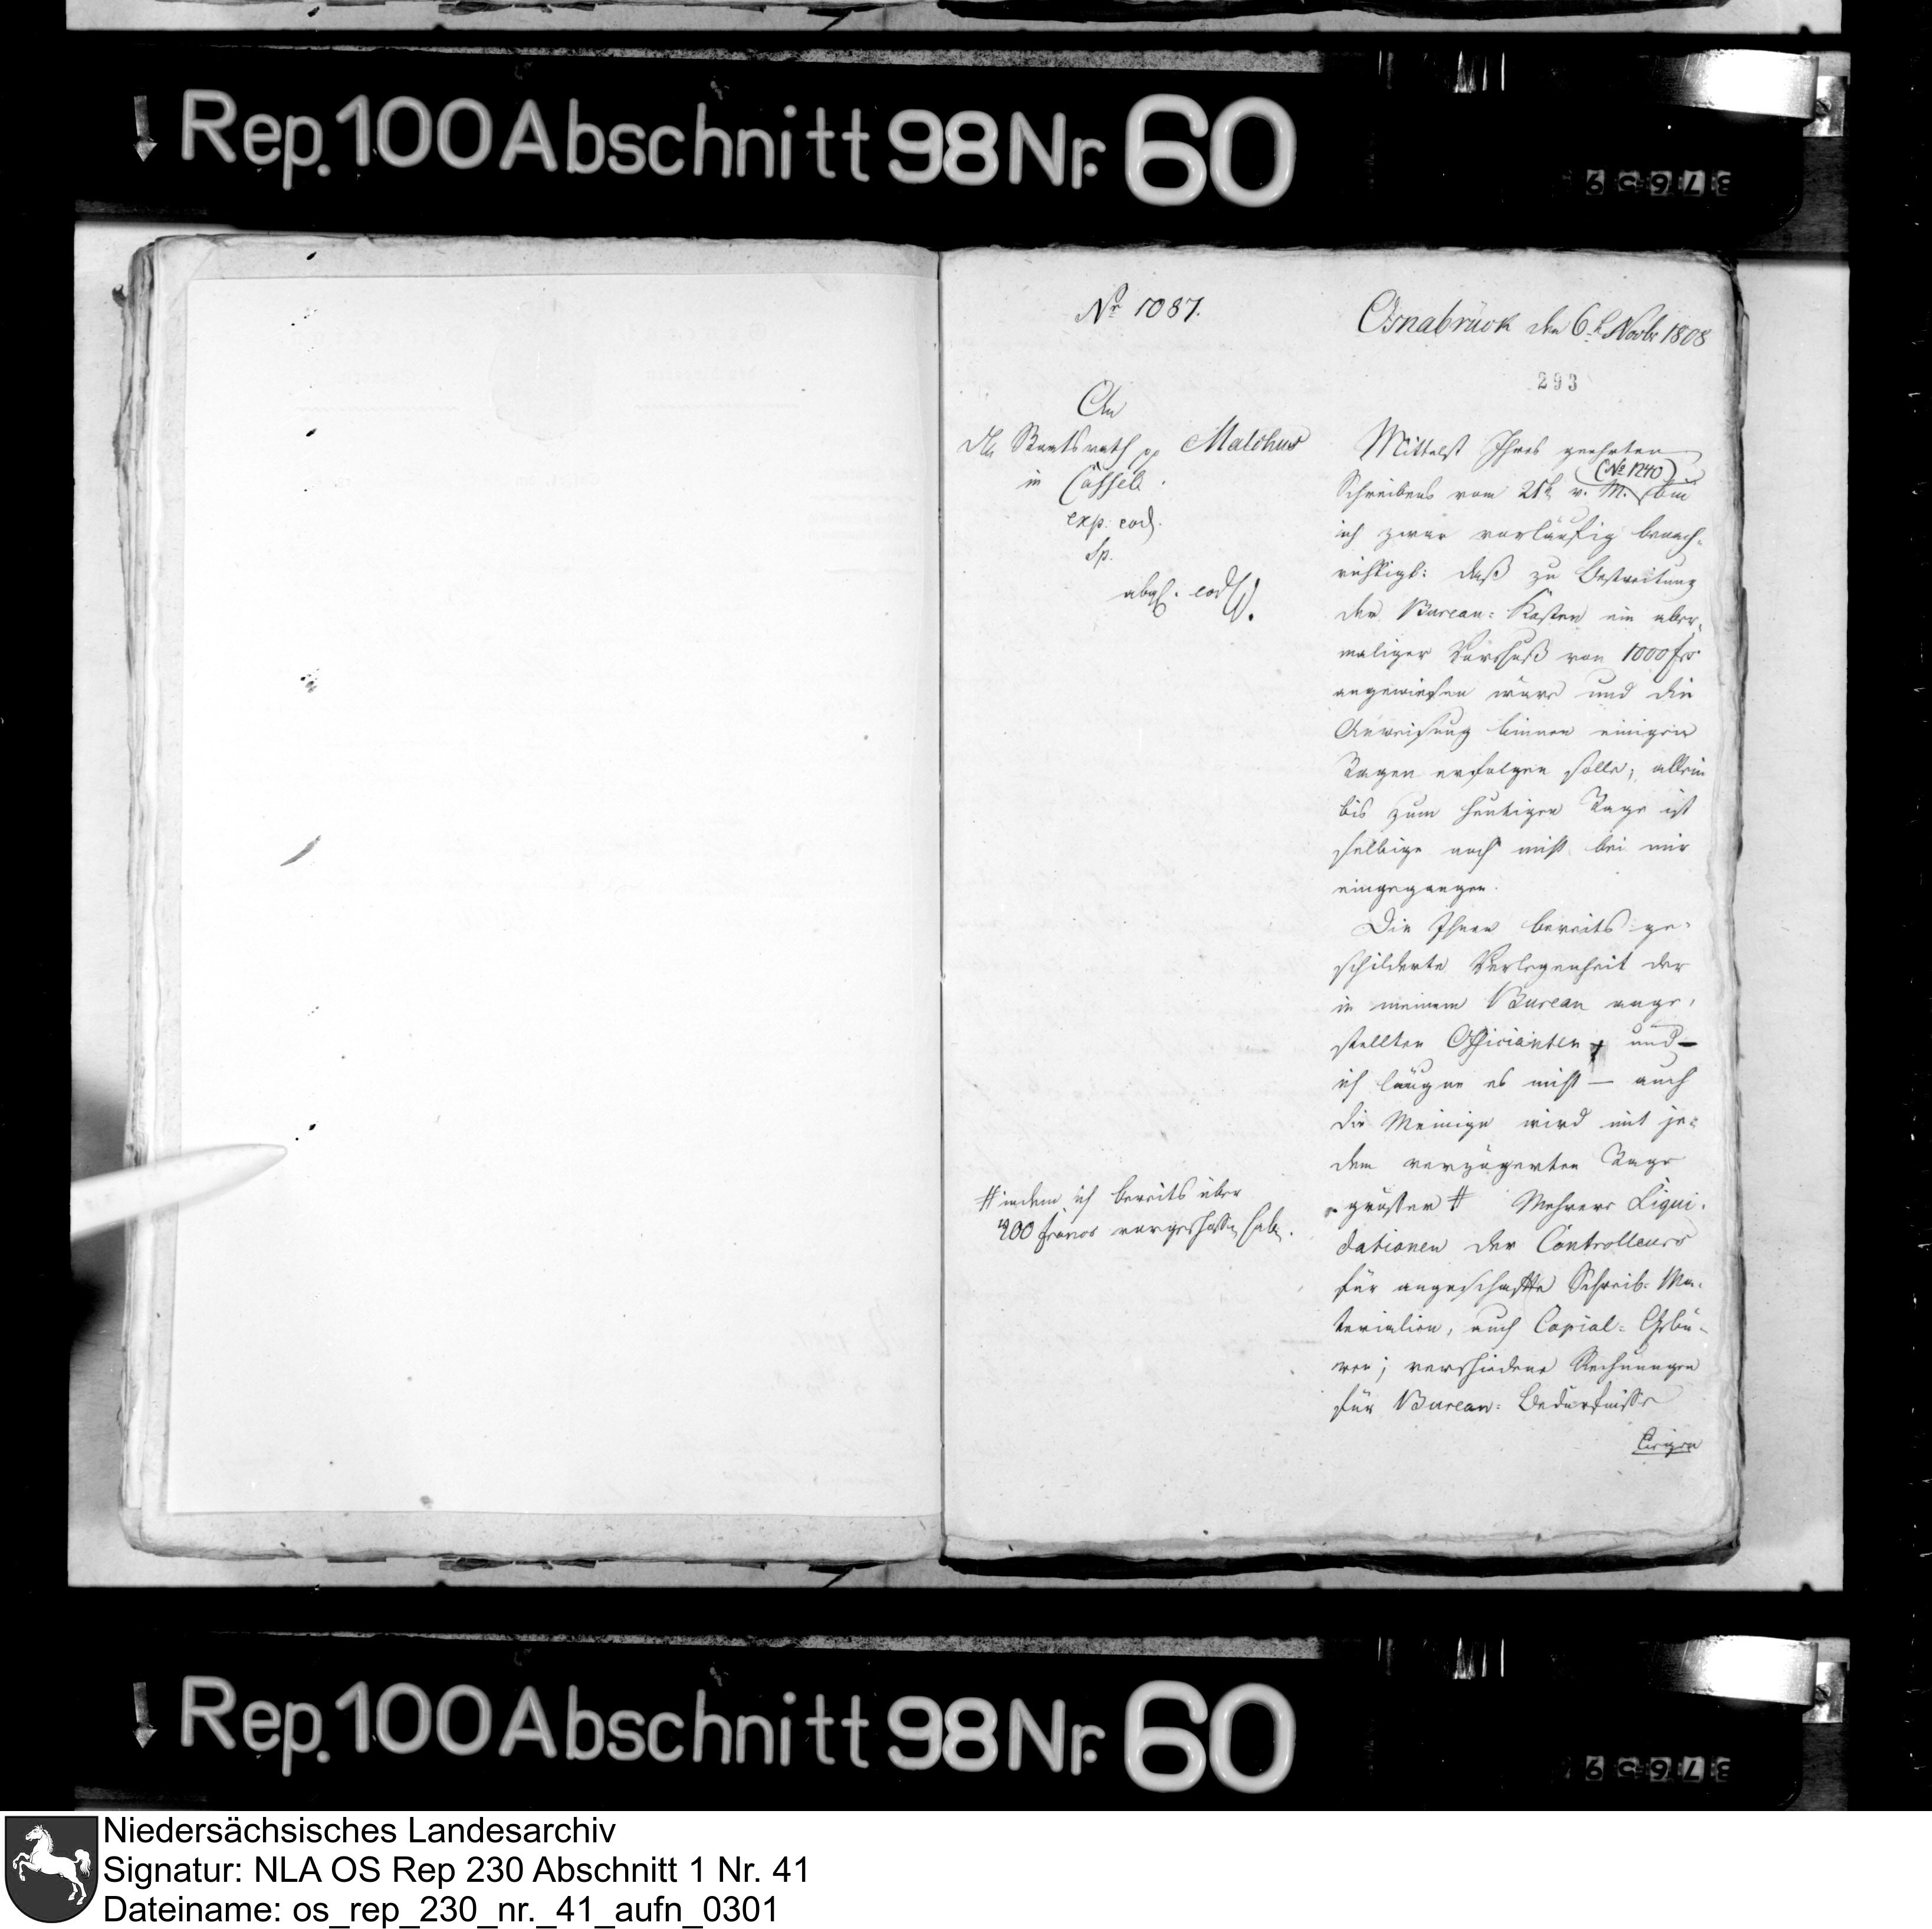 Rep. 100 Abschnitt 98 Nr. 60
37659
Nr. 1087.
Osnabrück den 6t. Novbr 1808
293
An
den Staatsrath pp Malchus
in Cassel.
exp. eod.
Sp.
abges. eod.
Mittelst Ihres geehrten
(No 1240)
Schreibens vom 21t v. M. bin
ich zwar vorläufig benach-
richtigt: daß zu Bestreitung
der Bureau-Kosten ein aber-
maliger Vorschuß von 1000 frs
angewiesen wäre und die
Anweisung binnen einigen
Tagen erfolgen solle; allein
bis zum heutigen Tage ist
selbige noch nicht bei mir
eingegangen.
Die Ihnen bereits ge-
schilderte Verlegenheit der
in meinem Bureau ange-
stellten Officianten, und –
ich läugne es nicht – auch
die Meinige wird mit je-
dem verzögerten Tage
größer # Mehrere Liqui-
dationen der Controlleurs
für angeschaffte Schreib-Ma-
terialien, auch Copial-Gebü-
ren; verschiedene Rechnungen
für Bureau-Bedürfnisse
liegen
# indem ich bereits über
francs vorgeschossen habe.
Rep. 100 Abschnitt 98 Nr. 60
37659
Niedersächsisches Landesarchiv
Signatur: NLA OS Rep 230 Abschnitt 1 Nr. 41
Dateiname: os_rep_230_nr._41_aufn_0301